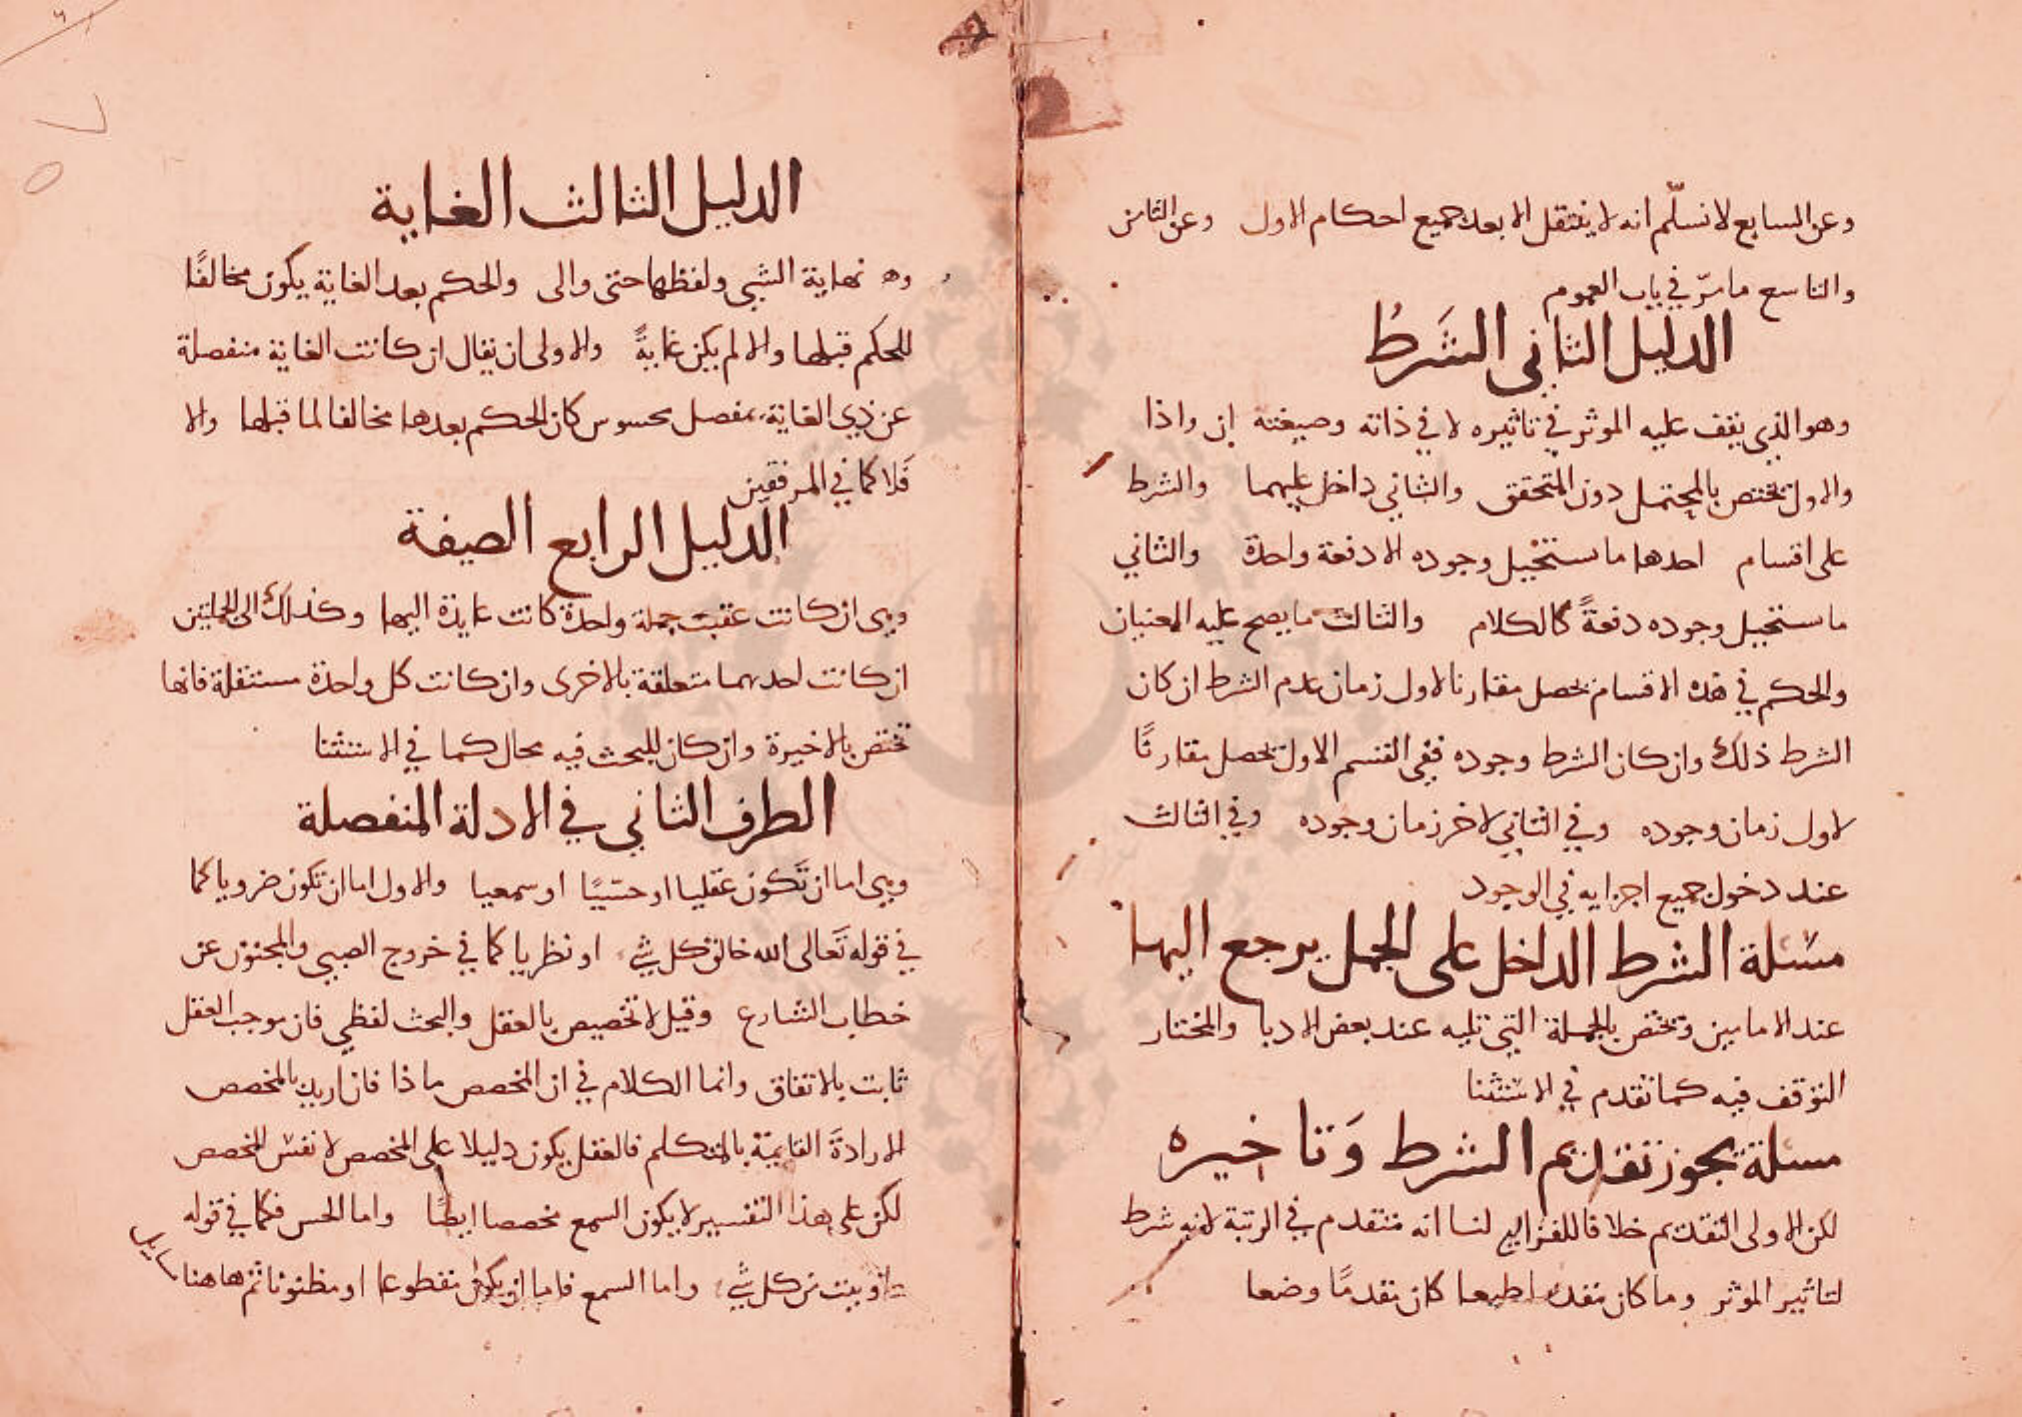 وعن السابع لا نسلّم انه لا ينتقل الا بعد جميع احكام الاول وعن الثامن
والتاسع ما مرّ في باب العموم
الدليل الثاني الشَرطُ
وهو الذي يقف عليه الموثر في تاثيره لا في ذاته وصيغته ان واذا
والاول يختص بالمحتمل دون المتحقق والثاني داخل عليهما والشرط
على اقسام احدها ما يستحيل وجوده الا دفعة واحدة والثاني
ما يستحيل وجوده دفعةً كالكلام والثالث ما يصح عليه المعنيان
والحكم في هذه الاقسام يحصل مقارنا لاول زمان عدم الشرط ان كان
الشرط ذلك وان كان الشرط وجوده ففي القسم الاول يحصل مقارنًا
لاول زمان وجوده وفي الثاني لاخر زمان وجوده وفي الثالث
عند دخول جميع اجزايه في الوجود
مسئلة الشرط الداخل على الجمل يرجع اليها
عند الامامين وتختص بالجملة التي تليه عند بعض الادبا والمختار
التوقف فيه كما تقدم في الاستثنا
مسئلة يجوز تقديم الشرط وَتاخيره
لكن الاولى التقديم خلافا للفرا لنا انه متقدم في الرتبة لانه شرط
لتاثير الموثر وما كان متقدما طبعا كان مقدمًا وضعا
الدليل الثالث الغاية
وهي نهاية الشي ولفظها حتى والى والحكم بعد الغاية يكون مخالفًا
للحكم قبلها والا لم يكن غايةً والاولى ان يقال ان كانت الغاية منفصلة
عن ذي الغاية بمفصل محسوس كان الحكم بعدها مخالفا لما قبلها والا
فَلا كما في المرفقين
الدليل الرابع الصفة
وهي ان كانت عقيب جملة واحدة كانت عايدة اليها وكذلك الى الجملتين
ان كانت احديهما متعلقة بالاخرى وان كانت كل واحدة مستقلة فانها
تختص بالاخيرة وان كان للبحث فيه مجال كما في الاستثنا
الطرف الثاني في الادلة المنفصلة
وهي اما ان تَكون عقليا او حسّيًا او سمعيا والاول اما ان تكون ضروريا كما
في قوله تَعالى الله خالق كل شيء او نظريا كما في خروج الصبي والمجنون عن
خطاب الشارع وقيل لا تخصيص بالعقل والبحث لفظي فان موجب العقل
ثابت بالاتفاق وانما الكلام في ان المخصص ماذا فان اريد بالمخصص
الارادةَ القايمة بالمتكلم فالعقل يكون دليلا على المخصص لا نفس المخصص
لكن على هذا التفسير لا يكون السمع مخصصا ايضًا واما الحس فكما في قوله
واوتيت من كل شيء واما السمع فاما ان يكون مقطوعا او مظنونا ثم هاهنا مسايل